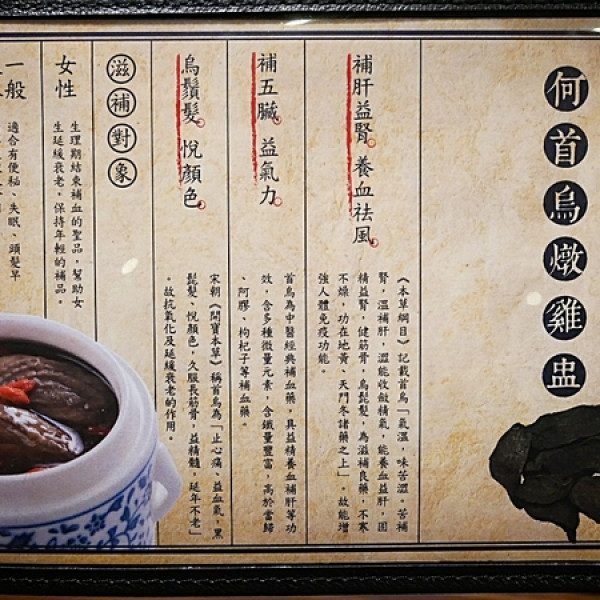 何首烏燉雞盅
補肝益腎。養血祛風。
《本草綱目》記載首烏「氣溫，味苦澀。苦補
腎，溫補肝，澀能收斂精氣，能養血益肝，固
精益腎，健筋骨，烏髭髮，為滋補良藥，不寒
不燥，功在地黃、天門冬諸藥之上」。故能增
強人體免疫功能。
補五臟。益氣力。
首烏為中醫經典補血藥，具益精養血補肝等功
效，含多種微量元素，含鐵量豐富，高於當歸
、阿膠、枸杞子等補血藥。
烏鬚髮。悅顏色。
宋朝《開寶本草》稱首烏為「止心痛、益血氣，黑
髭髮、悅顏色，久服長筋骨，益精髓，延年不老」
。故抗氧化及延緩衰老的作用。
滋補對象
女性
生理期結束補血的聖品，幫助女
生延緩衰老，保持年輕的補品。
一般
適合有便秘、失眠、頭髮早